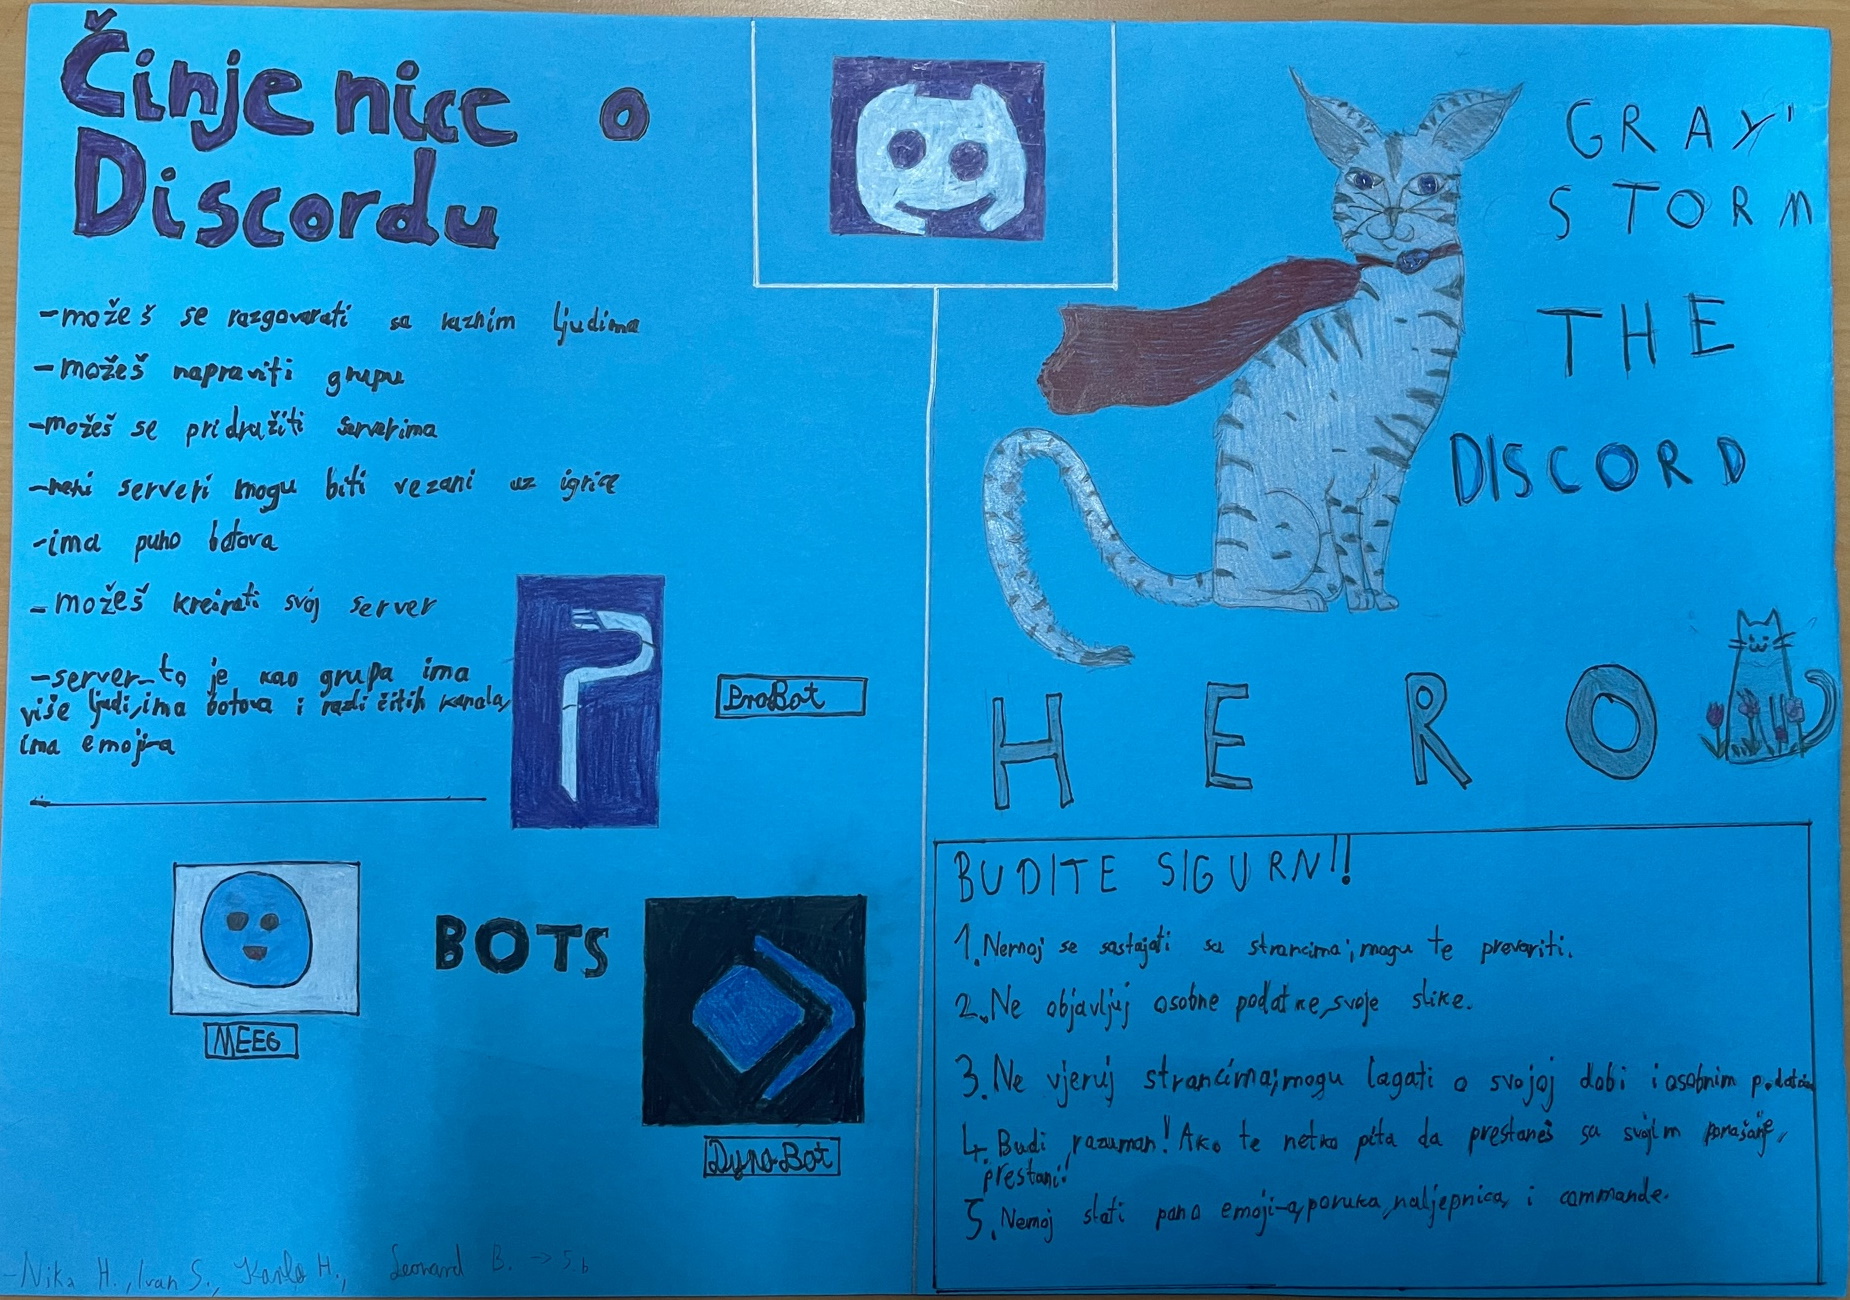 Činjenice o
Discordu
-možeš se razgovarati sa raznim ljudima
-možeš napraviti grupu
-možeš se pridružiti serverima
-neki serveri mogu biti vezani uz igrice
-ima puno botova
-možeš kreirati svoj server
-server-to je kao grupa ima
više ljudi, ima botova i različitih kanala,
ima emoji-a
ProBot
BOTS
MEE6
Dyno Bot
-Nika H., Ivan S., Karlo H., Leonard B. → 5.b
GRAY'
STORM
THE
DISCORD
HERO
BUDITE SIGURNI!
1. Nemoj se sastajati sa strancima; mogu te prevariti.
2. Ne objavljuj osobne podatke, svoje slike.
3. Ne vjeruj strancima; mogu lagati o svojoj dobi i osobnim podatcima
4. Budi razuman! Ako te netko pita da prestaneš sa svojim ponašanje,
prestani!
5. Nemoj slati puno emoji-a, poruka, naljepnica, i commande.